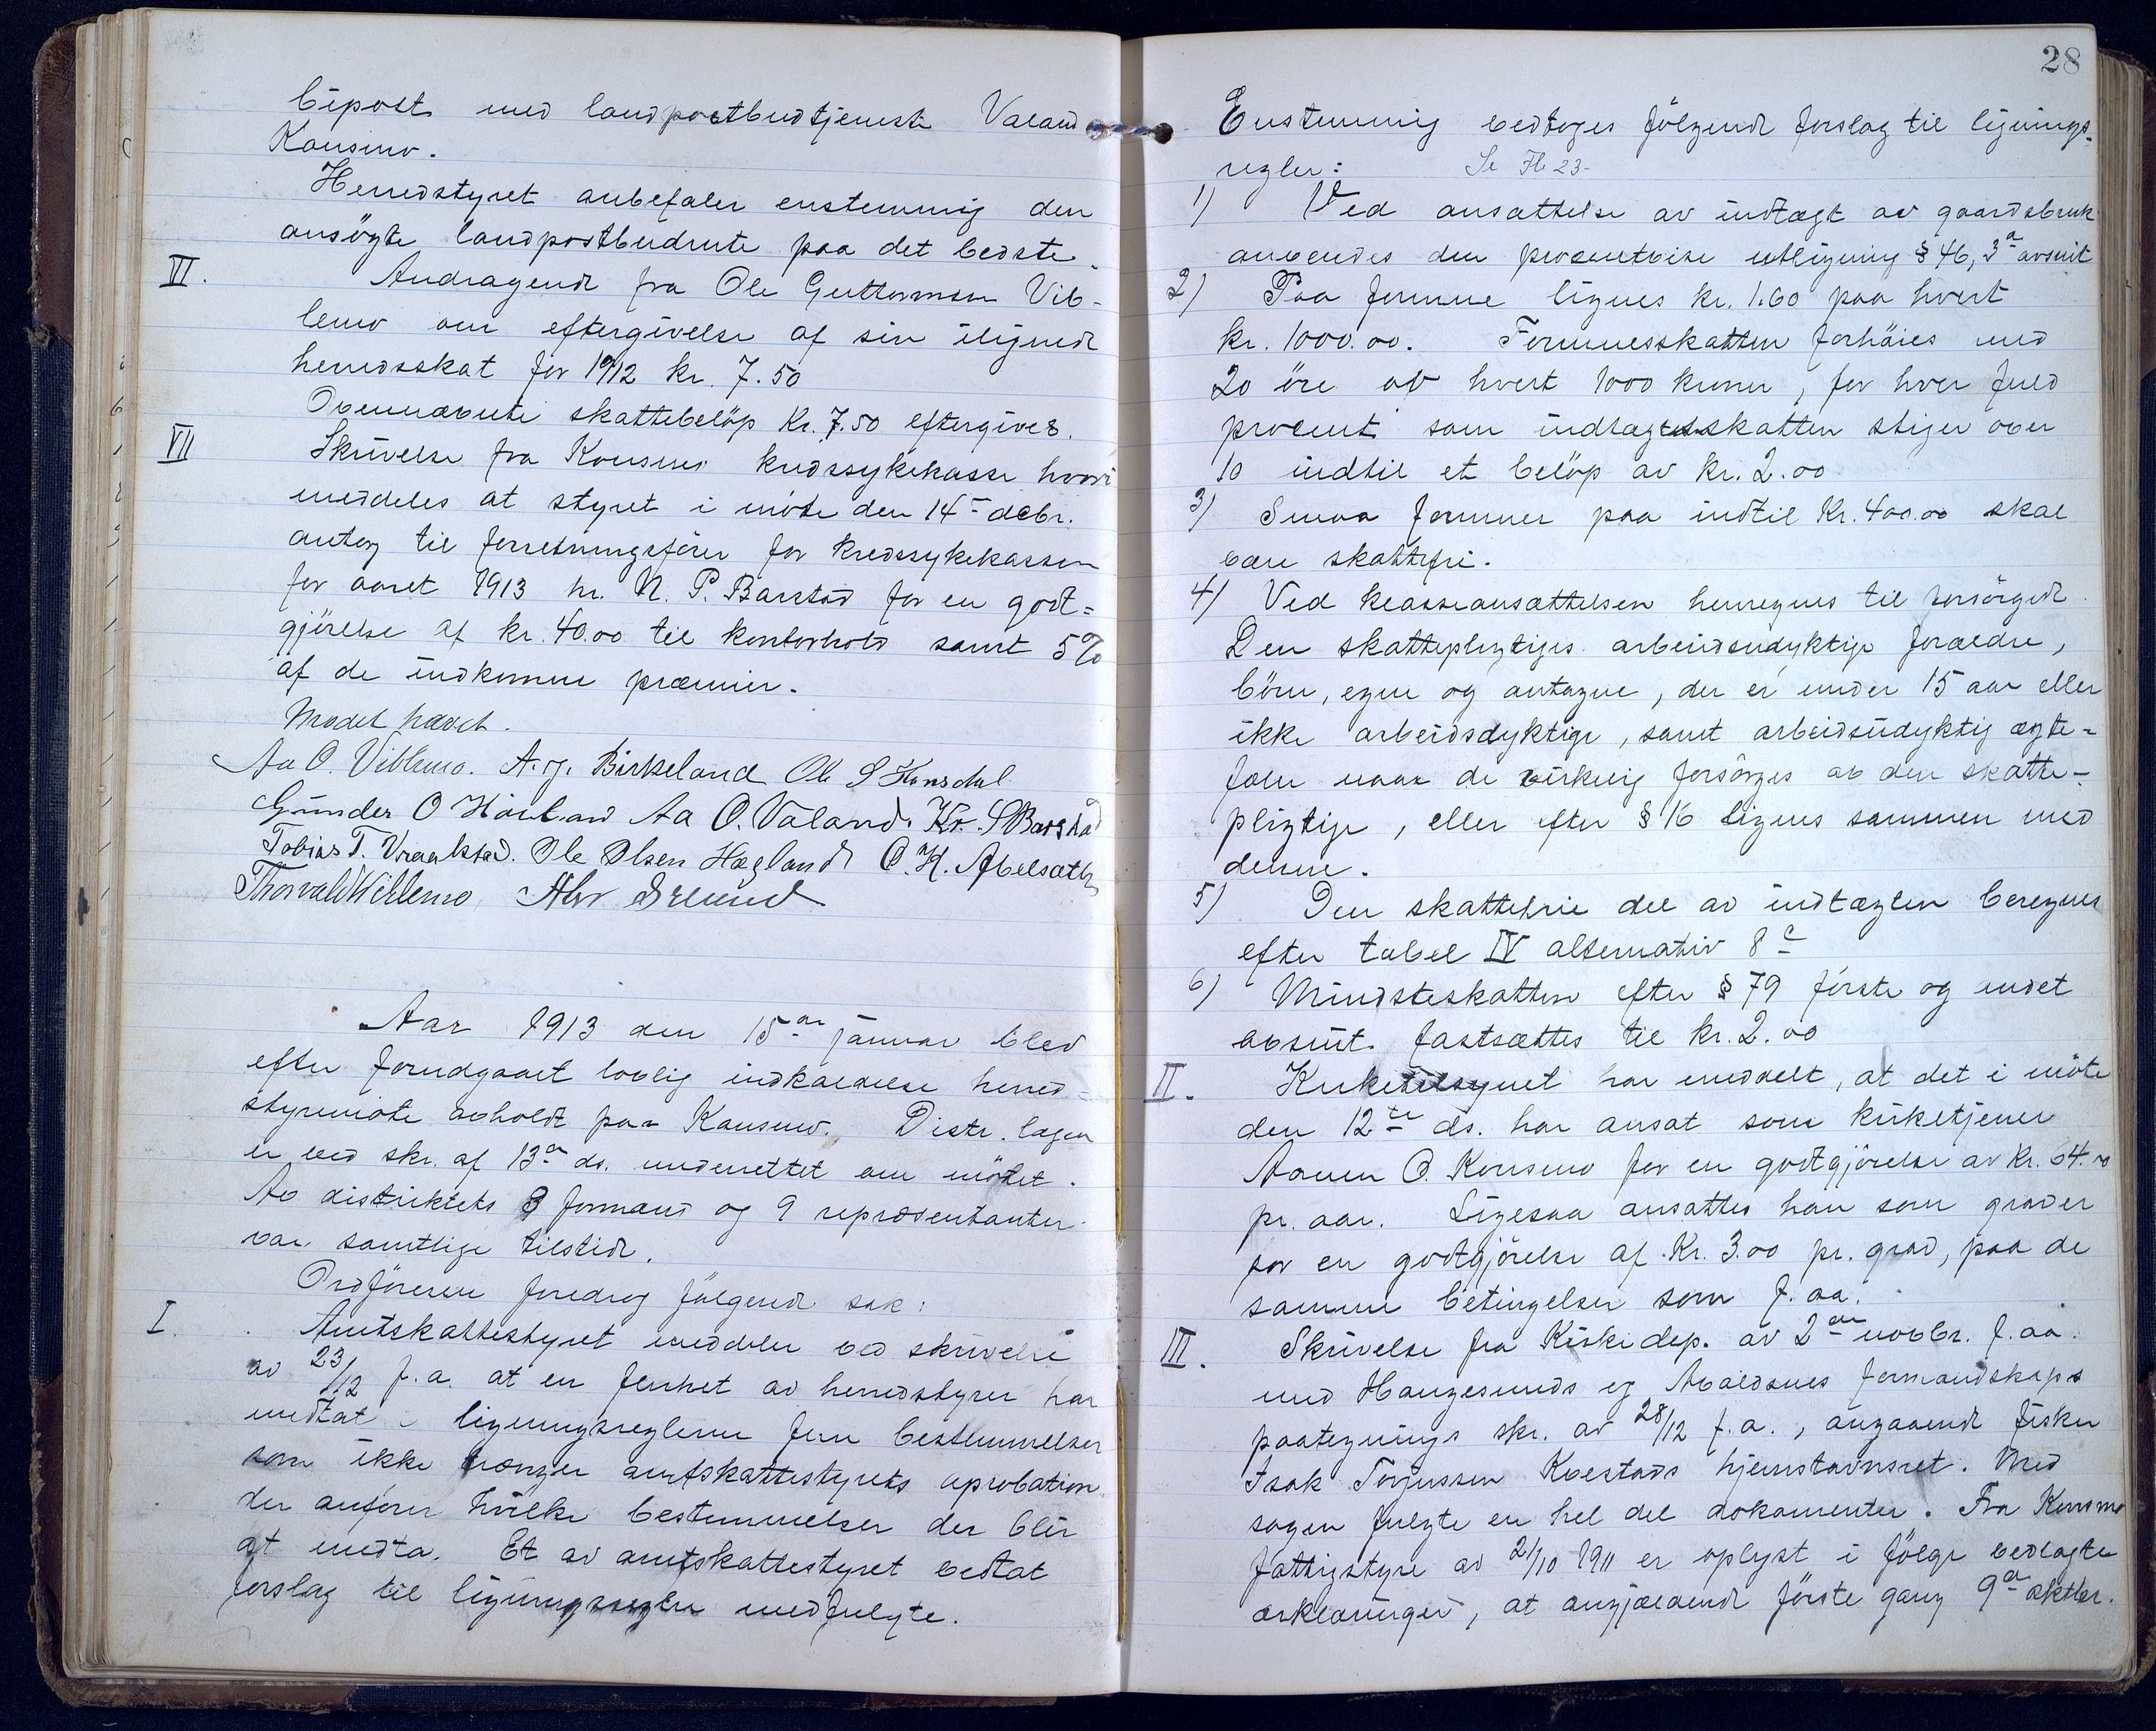 bipost med landpostbudtjeneste Valand
Konsmo.
Herredstyret anbefaler enstemmig den
ansögte landpostbudrute paa det bedste.
VI. Andragende fra Ole Guttormsen Vib-
lemo om eftergivelse af sin ilignede
herredsskat for 1912 kr. 7.50
Ovennævnte skattebelöp Kr. 7.50 eftergives.
VII Skrivelse fra Konsmo kredssykekasse hvori
meddeles at styret i möte den 14- debr.
antog til forretningsförer for kredssykekassen
for aaret 1913 hr. N. P. Barstad for en godt=
gjörelse af kr. 40.00 til kontorhold samt 5%
af de indkomne præmier.
Mødet hævet.
Aa O. Viblemo. A. J. Birkeland Ole S Konsdal
Gunder O Haaland Aa O. Valand. Kr. S Barstad
Tobias T. Vraalstad. Ole Olsen Hægland O. K. Abelsæth
Thorvald Wiblemo
Aar 1913 den 15de januar blev
efter forudgaaet lovlig indkaldelse herred=
styremöte avholdt paa Konsmo. Distr. lægen
er ved skr. af 13de ds. underrettet om mötet.
Av distriktets 3 formænd og 9 repræsentanter
var samtlige tilstede.
Ordföreren foredrog fölgende sak:
I. Amtskattestyret meddeler ved skrivelse
av 23/12 f. a. at en flerhet av herredstyrer har
medtat i ligningsreglerne flere bestemmelser
som ikke trænger amtskattestyrets aprobation
der anförer hvilke bestemmelser der blir
at medta. Et av amtskattestyret vedtat
forslag til ligningsregler medfulgte.
28
Enstemmig vedtoges fölgende forslag til lignings-
regler: Se Fl 23-
1) Ved ansættelse av indtægt av gaardsbruk
anvendes den procentvise utligning § 46, 3de avsnit
2) Paa formue lignes kr. 1.60 paa hvert
kr. 1000.00. Formuesskatten forhöies med
20 öre av hvert 1000 kroner, for hver fuld
procent som indtægtsskatten stiger over
10 indtil et belöp av kr. 2.00
3) Smaa formuer paa indtil Kr. 400.00 skal
være skattefri.
4) Ved klasseansættelsen henregnes til forsörgede
Den skattepligtiges arbeidsudyktige forældre,
börn, egne og antagne, der er under 15 aar eller
ikke arbeidsdyktige, samt arbeidsudyktig ægte-
fælle naar de virkelig forsörges av den skatte-
pligtige, eller efter § 16 lignes sammen med
denne.
5) Den skattefrie del av indtægten beregnes
efter tabel IV alternativ 8 c
6) Mindsteskatten efter § 79 förste og andet
avsnit. fastsættes til kr. 2.00
II. Kirketilsynet har meddelt, at det i möte
den 12te ds. har ansat som kirketjener
Aanen O. Konsmo for en godtgjörelse av Kr. 64.00
pr. aar. Ligesaa ansattes han som graver
for en godtgjörelse af Kr. 3.00 pr. grav, paa de
samme betingelser som f. aa.
III. Skrivelse fra Kirkedep. av 2den novbr. f. aa.
med Haugesunds og Avaldsnes formandskaps
paategnings skr. av 28/12 f. a., angaaende fisker
Isak Torjussen Kvestads hjemstavnsret. Med
sagen fulgte en hel del dokumenter. Fra Konsmo
fattigstyre av 21/10 1911 er oplyst i fölge vedlagte
erklæringer, at angjældende förste gang 9de oktbr.